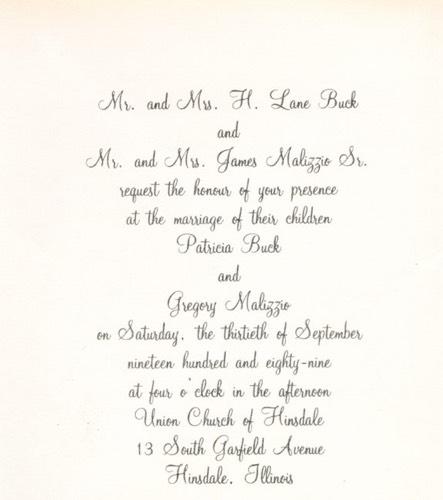 Mr. and Mrs. H. Lane Buck
and
Mr. and Mrs. James Malizzio Sr.
request the honour of your presence
at the marriage of their children
Patricia Buck
and
Gregory Malizzio
on Saturday, the thirtieth of September
nineteen hundred and eighty-nine
at four o'clock in the afternoon
Union Church of Hinsdale
13 South Garfield Avenue
Hinsdale, Illinois